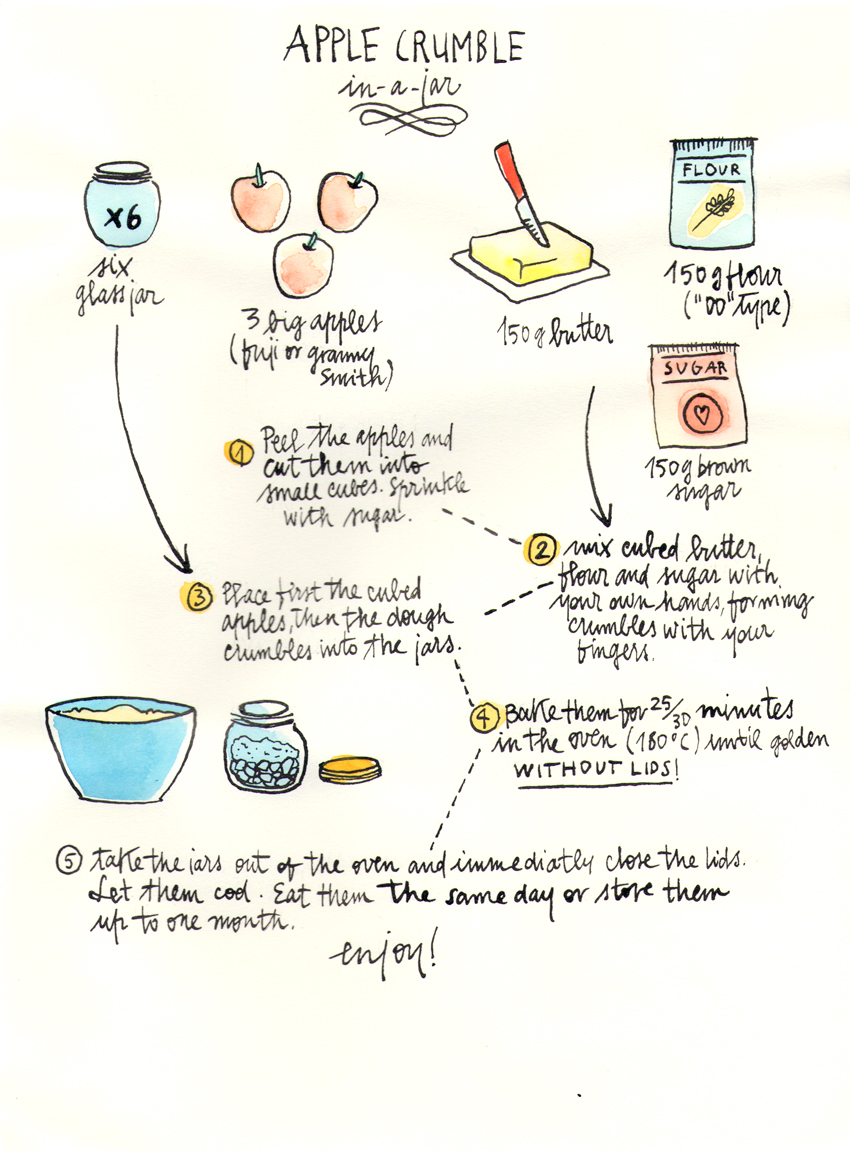 APPLE CRUMBLE
in-a-jar
x6
six
glass jar
3 big apples
(fuji or granny
smith)
150g butter
FLOUR
150g flour
("00" type)
SUGAR
150g brown
sugar
1 Peel the apples and
cut them into
small cubes. Sprinkle
with sugar.
2 mix cubed butter,
flour and sugar with
your own hands, forming
crumbles with your
fingers.
3 Place first the cubed
apples, then the dough
crumbles into the jars.
4 Bake them for 25/30 minutes
in the oven (180°C) until golden
WITHOUT LIDS!
5 take the jars out of the oven and immediatly close the lids.
Let them cool. Eat them the same day or store them
up to one month.
enjoy!